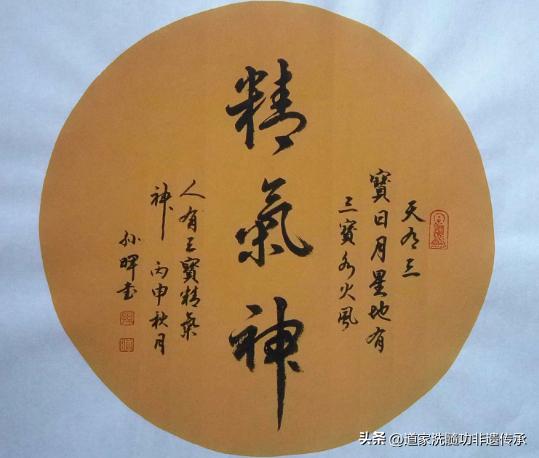 天有三
寶日月星地有
三寶水火風
精氣神
人有三寶精氣
神 丙申秋月
孙晖书
头条 @道家洗髓功非遗传承